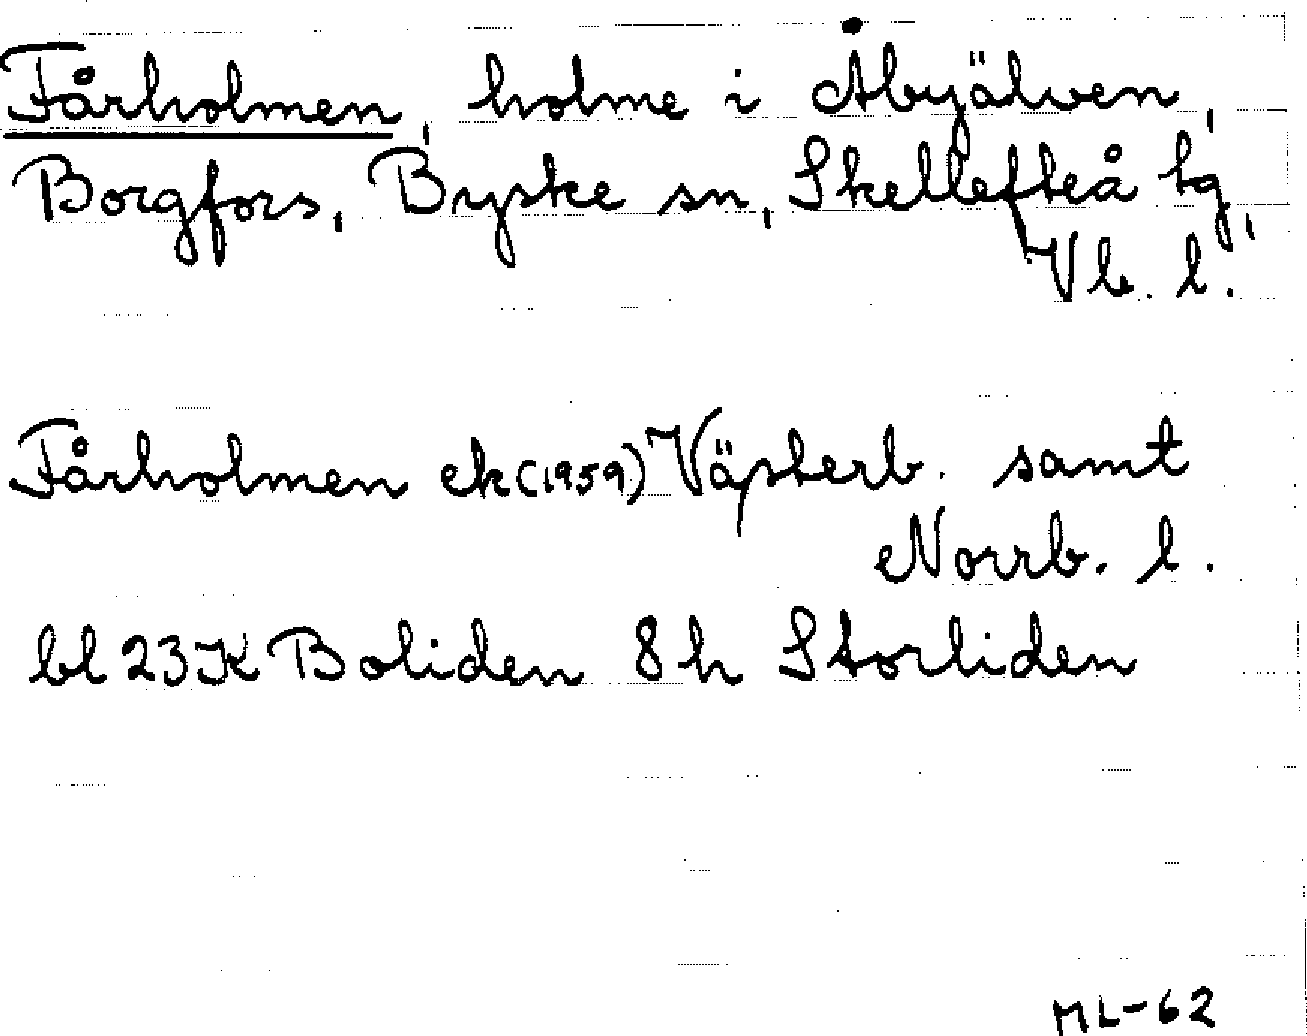 Fårholmen, holme i Åbyälven,
Borgfors, Byske sn, Skellefteå tg,
Vb. l.
Fårholmen ek (1959) Västerb. samt
Norrb. l.
bl 23K Boliden 8h Storliden
ML-62